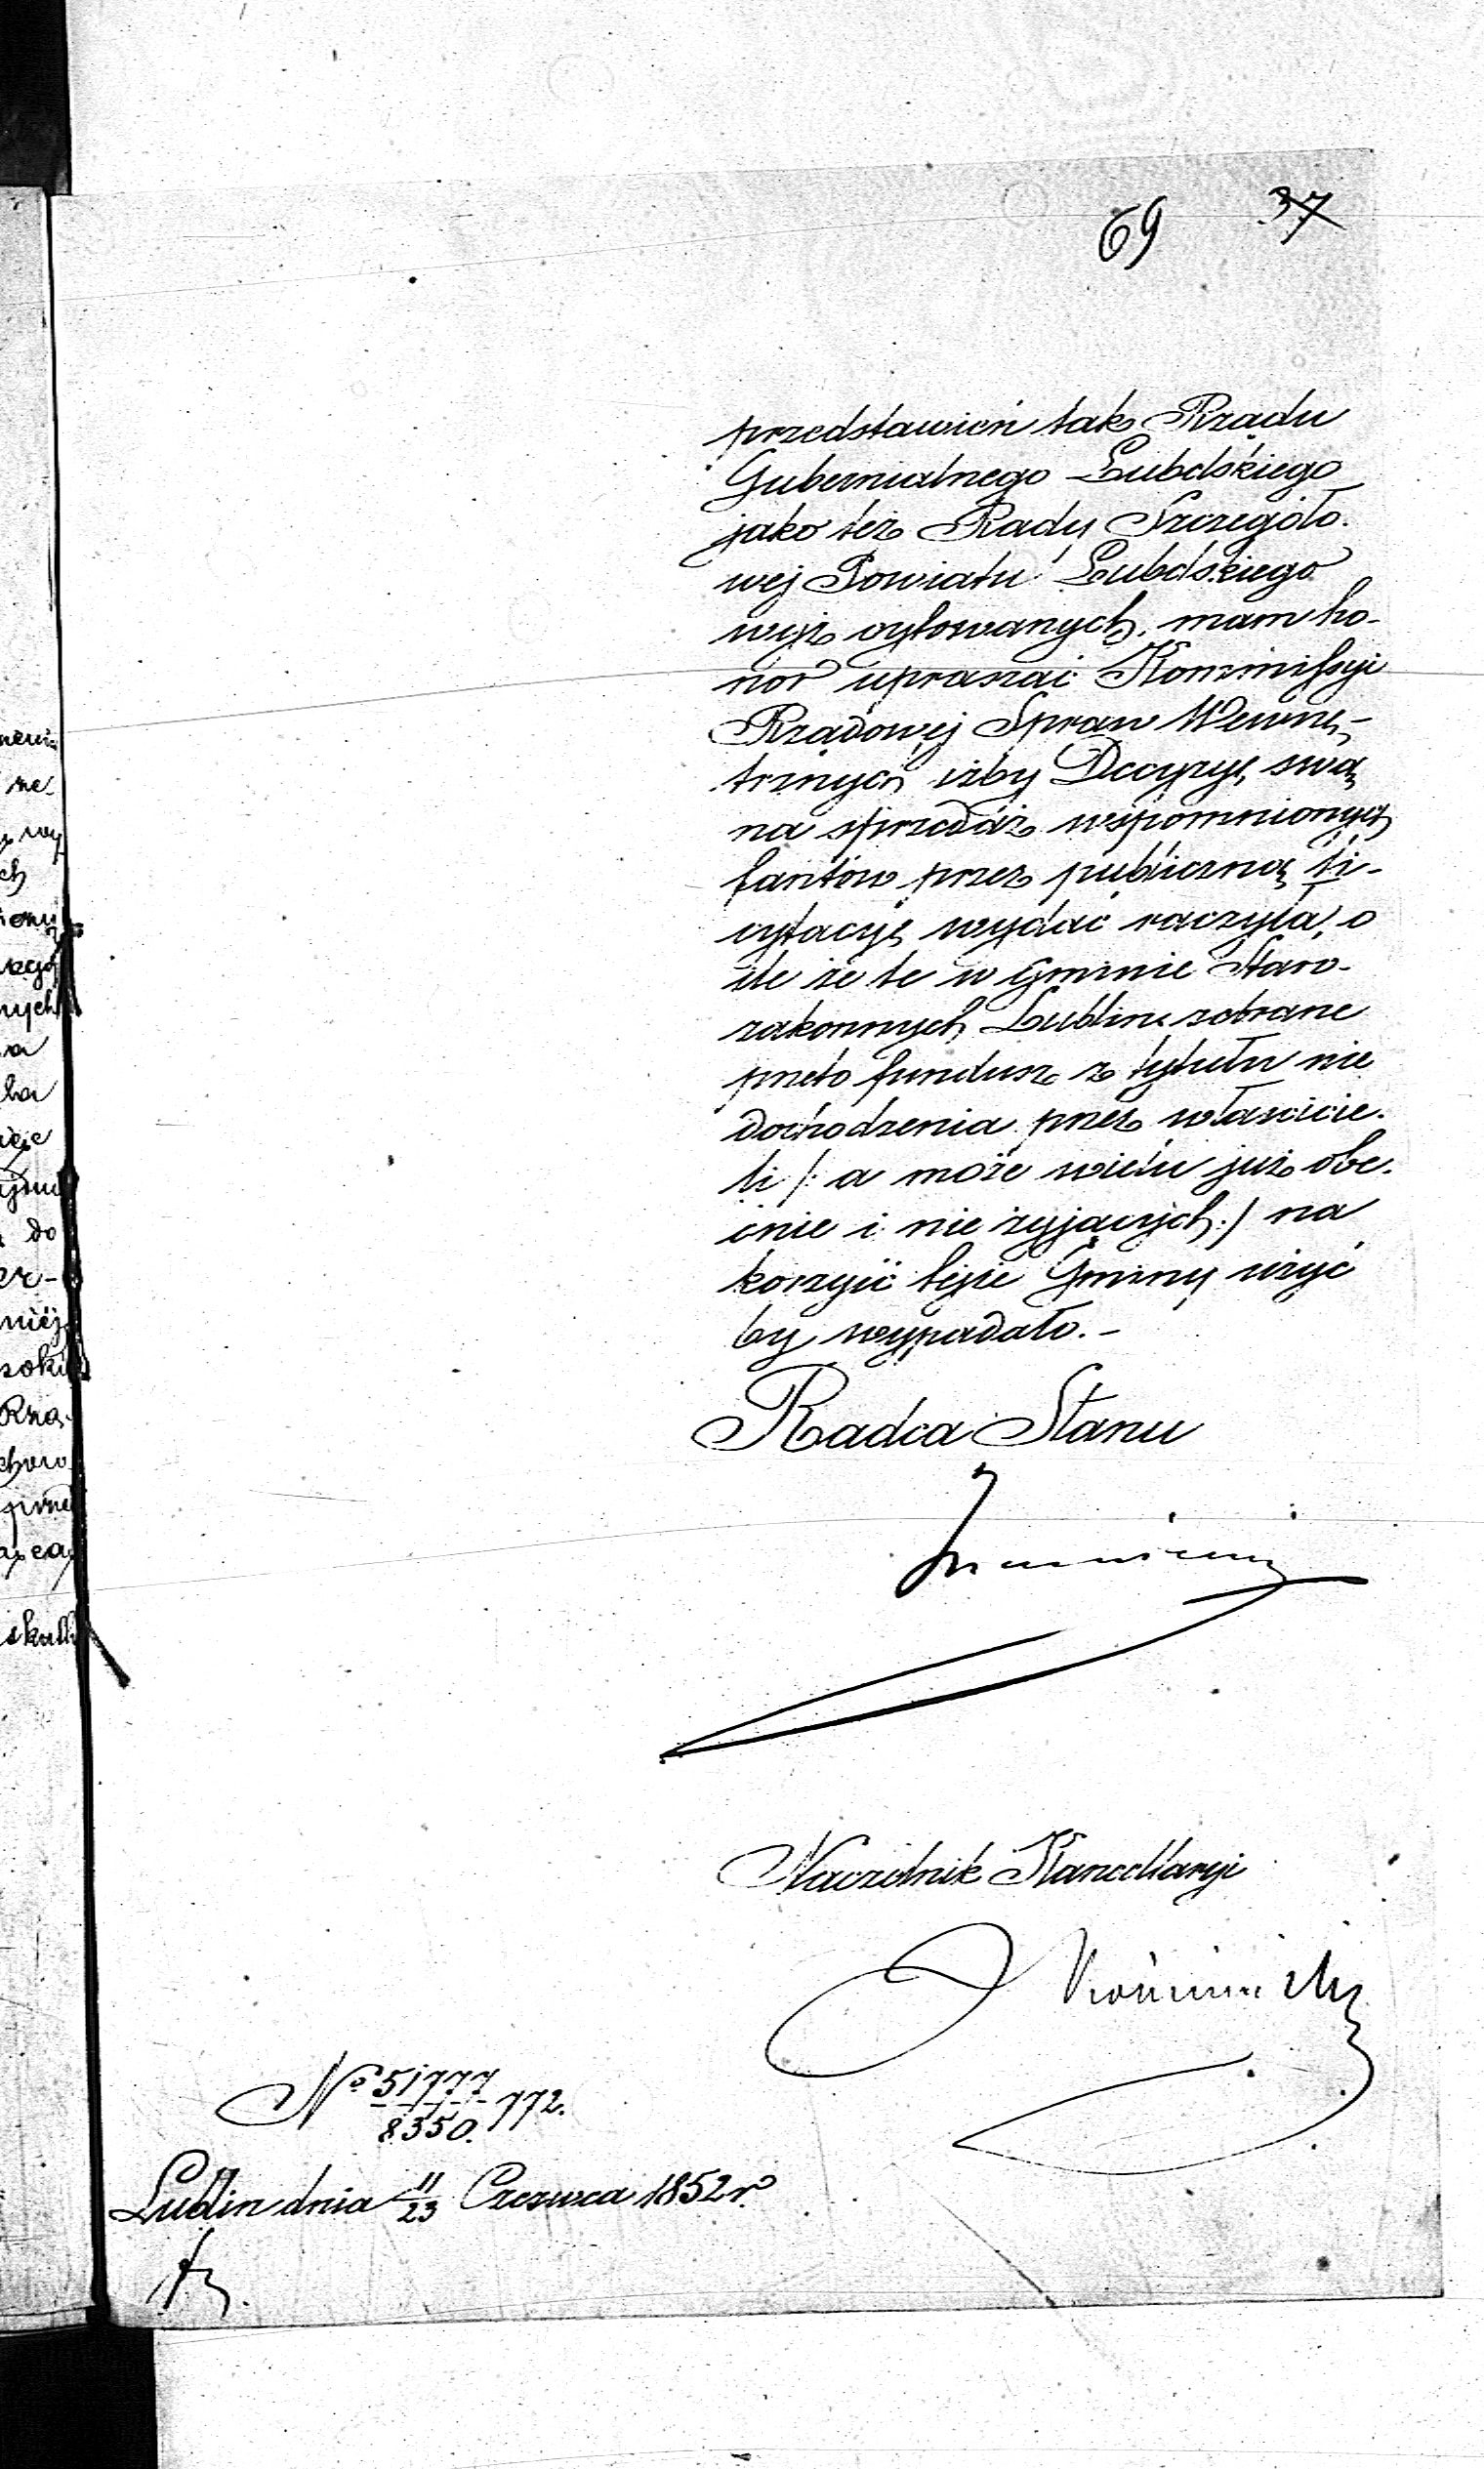 69 37
przedstawień tak Rządu
Gubernialnego Lubelskiego
jako też Rady Szczegóło-
wej Powiatu Lubelskiego
wyż cytowanych, mam ho-
nor upraszać Kommissyi
Rządowej Spraw Wewnę-
trznych iżby Decyzyę swą
na sprzedaż wspomnionych
fantów przez publiczną li-
cytacyę wydać raczyła, o
ile że te w Gminie Staro-
zakonnych Lublina zebrane
przeto fundusz z tytułu nie
dochodzenia przez właścicie-
li /: a może wielu już obe-
cnie i nie żyjących :/ na
korzyść tejże Gminy użyć
by wypadało. -
Radca Stanu
Naczelnik Kancellaryi
No 51777
8350. 772.
Lublin dnia 11/23 Czerwca 1852 r.